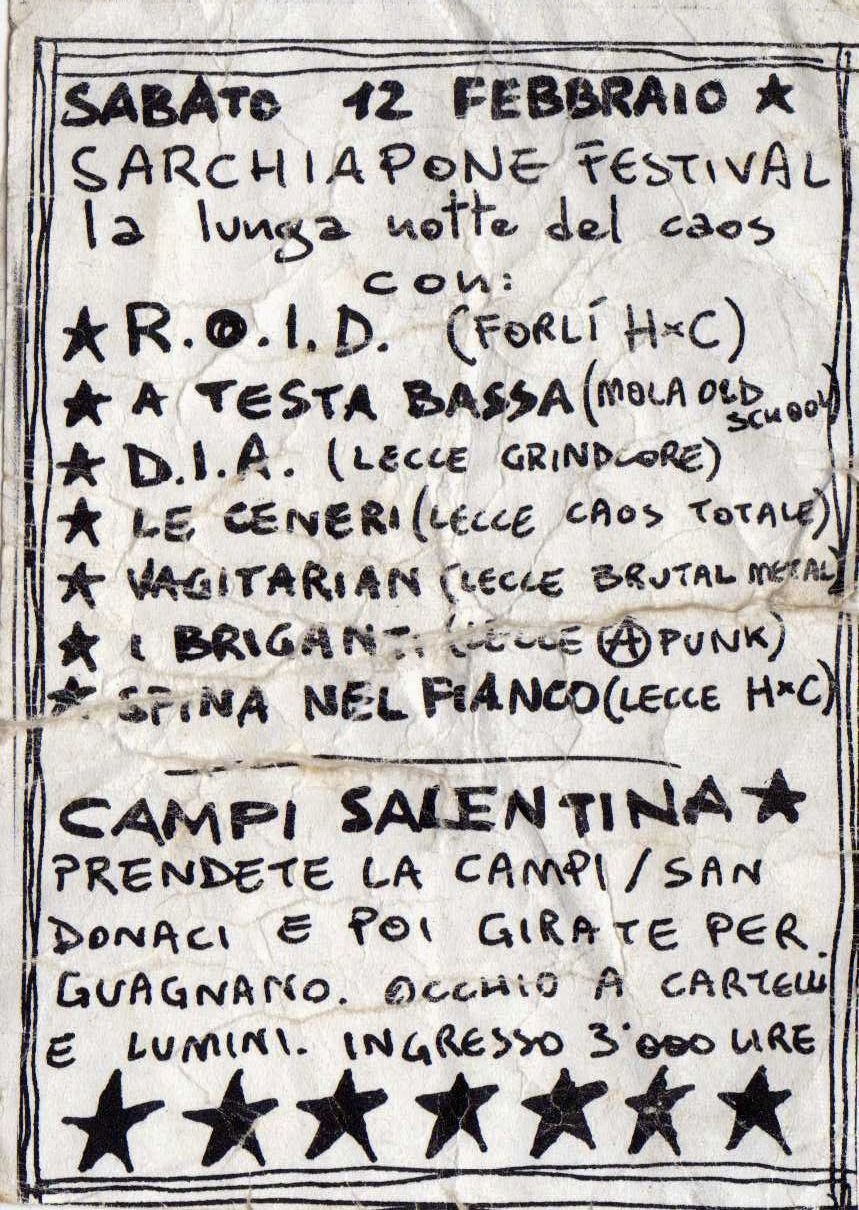 SABATO 12 FEBBRAIO ★
SARCHIAPONE FESTIVAL
la lunga notte del caos
con:
★ R.O.I.D. (FORLÍ H×C)
★ A TESTA BASSA (MOLA OLD SCHOOL)
★ D.I.A. (LECCE GRINDCORE)
★ LE CENERI (LECCE CAOS TOTALE)
★ VAGITARIAN (LECCE BRUTAL METAL)
★ I BRIGANTI (LECCE Ⓐ PUNK)
★ SPINA NEL FIANCO (LECCE H×C)
CAMPI SALENTINA ★
PRENDETE LA CAMPI / SAN
DONACI E POI GIRATE PER
GUAGNANO. OCCHIO A CARTELLI
E LUMINI. INGRESSO 3'000 LIRE